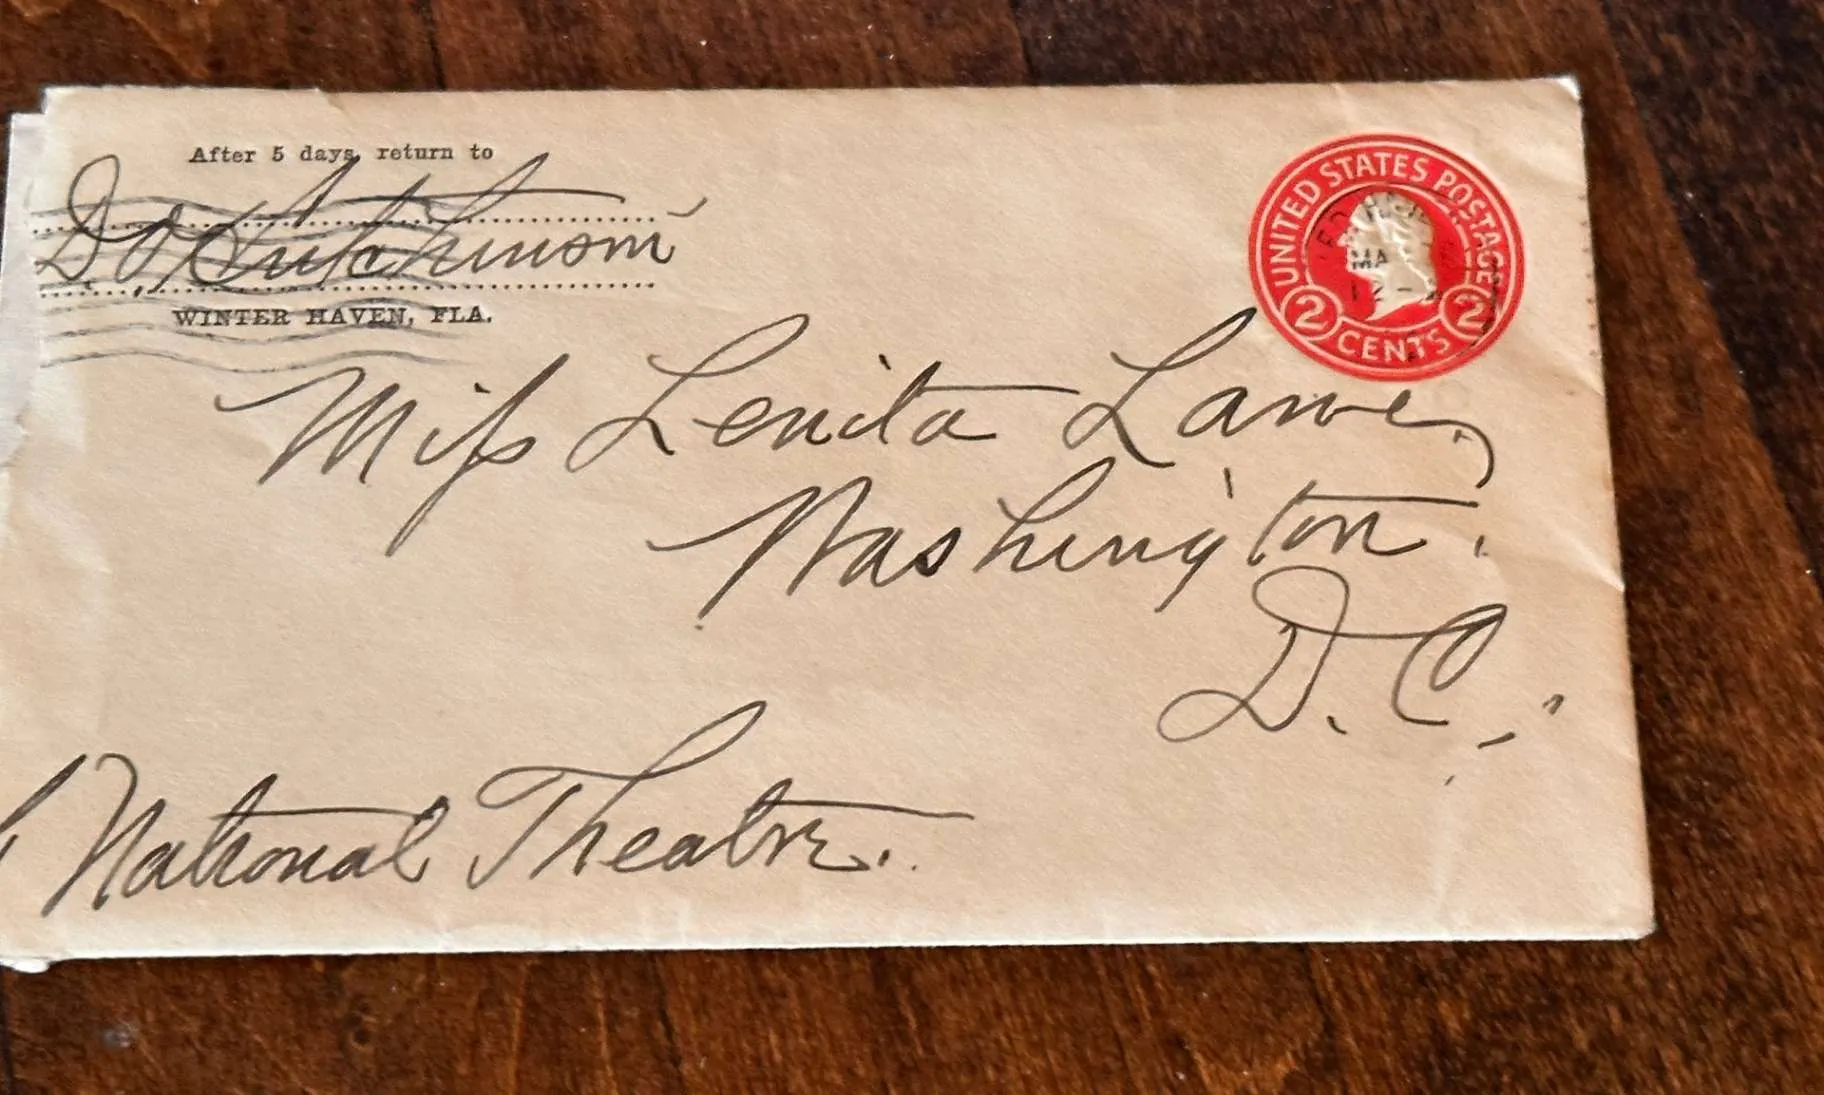 After 5 days, return to
D. O. Hutchinson
WINTER HAVEN, FLA.
UNITED STATES POSTAGE
MA
12-
2 CENTS 2
Miss Lenita Lane,
Washington.
D. C.
National Theatre.